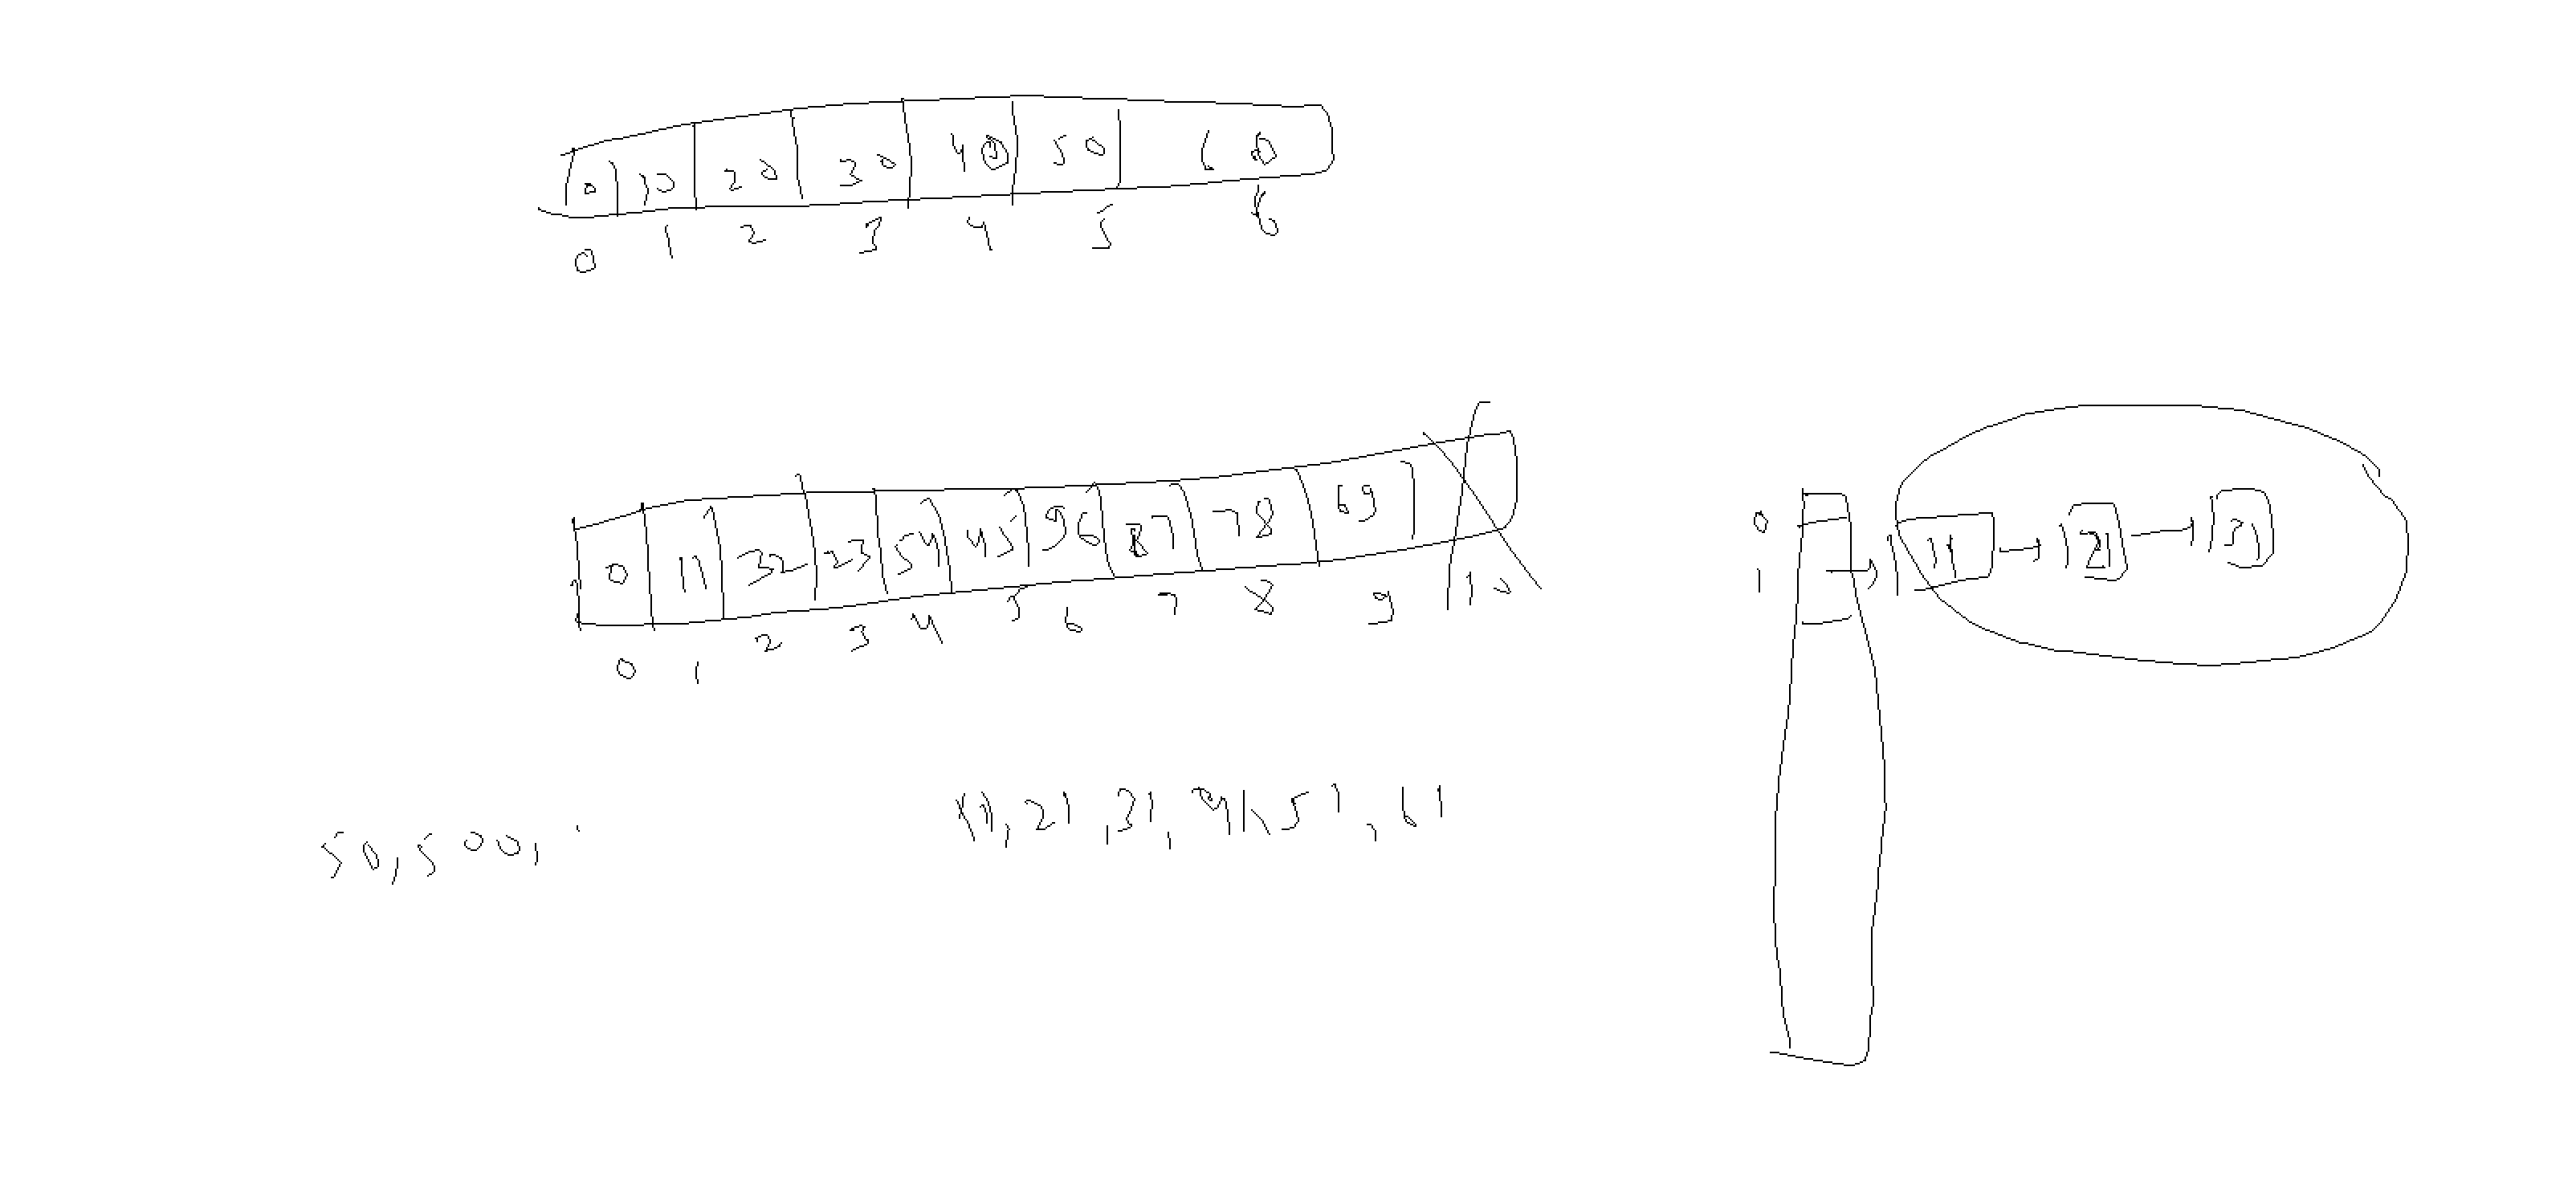 0 10 20 30 40 50 60
0 1 2 3 4 5 6
0 11 32 23 54 45 96 87 78 69
0 1 2 3 4 5 6 7 8 9 10
0
1
11 21 31
11, 21, 31, 41, 51, 61
50, 500,